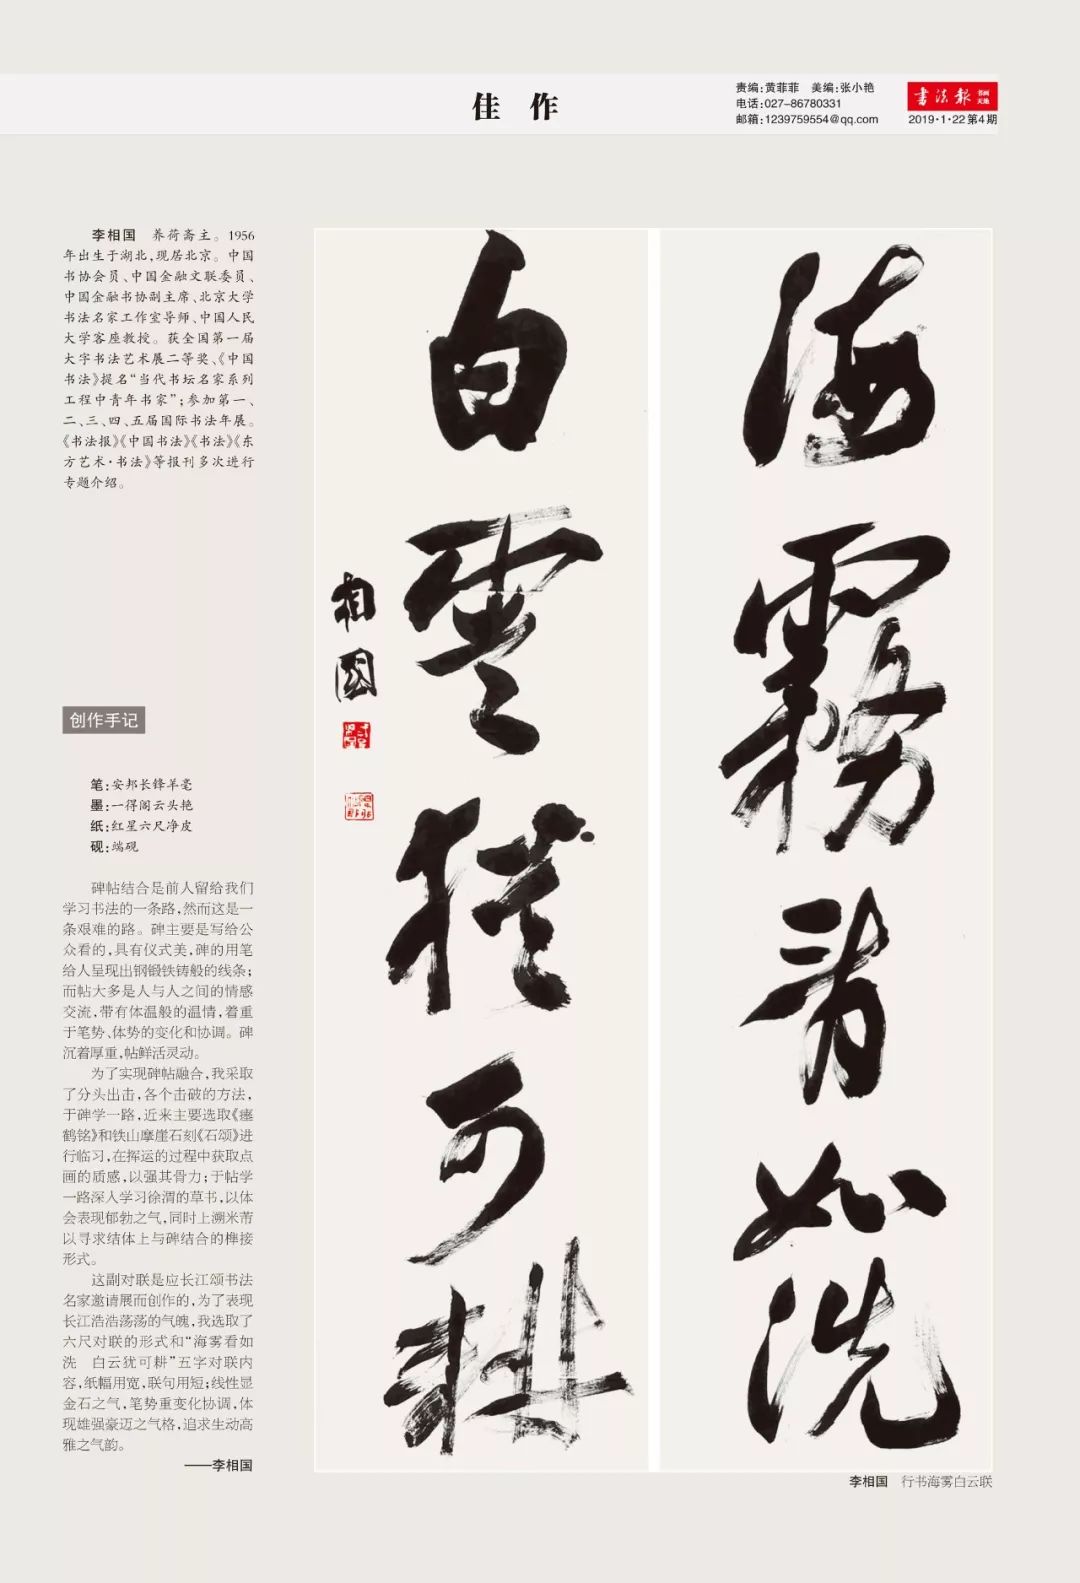 佳 作
责编:黄菲菲 美编:张小艳
电话:027-86780331
邮箱:1239759554@qq.com
书法报 书画天地
2019·1·22第4期
李相国 养荷斋主。1956
年出生于湖北,现居北京。中国
书协会员、中国金融文联委员、
中国金融书协副主席、北京大学
书法名家工作室导师、中国人民
大学客座教授。获全国第一届
大字书法艺术展二等奖、《中国
书法》提名“当代书坛名家系列
工程中青年书家”;参加第一、
二、三、四、五届国际书法年展。
《书法报》《中国书法》《书法》《东
方艺术·书法》等报刊多次进行
专题介绍。
创作手记
笔:安邦长锋羊毫
墨:一得阁云头艳
纸:红星六尺净皮
砚:端砚
碑帖结合是前人留给我们
学习书法的一条路,然而这是一
条艰难的路。碑主要是写给公
众看的,具有仪式美,碑的用笔
给人呈现出钢锻铁铸般的线条;
而帖大多是人与人之间的情感
交流,带有体温般的温情,着重
于笔势、体势的变化和协调。碑
沉着厚重,帖鲜活灵动。
为了实现碑帖融合,我采取
了分头出击,各个击破的方法,
于碑学一路,近来主要选取《瘗
鹤铭》和铁山摩崖石刻《石颂》进
行临习,在挥运的过程中获取点
画的质感,以强其骨力;于帖学
一路深入学习徐渭的草书,以体
会表现郁勃之气,同时上溯米芾
以寻求结体上与碑结合的榫接
形式。
这副对联是应长江颂书法
名家邀请展而创作的,为了表现
长江浩浩荡荡的气魄,我选取了
六尺对联的形式和“海雾看如
洗 白云犹可耕”五字对联内
容,纸幅用宽,联句用短;线性显
金石之气,笔势重变化协调,体
现雄强豪迈之气格,追求生动高
雅之气韵。
——李相国
海雾看如洗
白云犹可耕
相国
李相国 行书海雾白云联